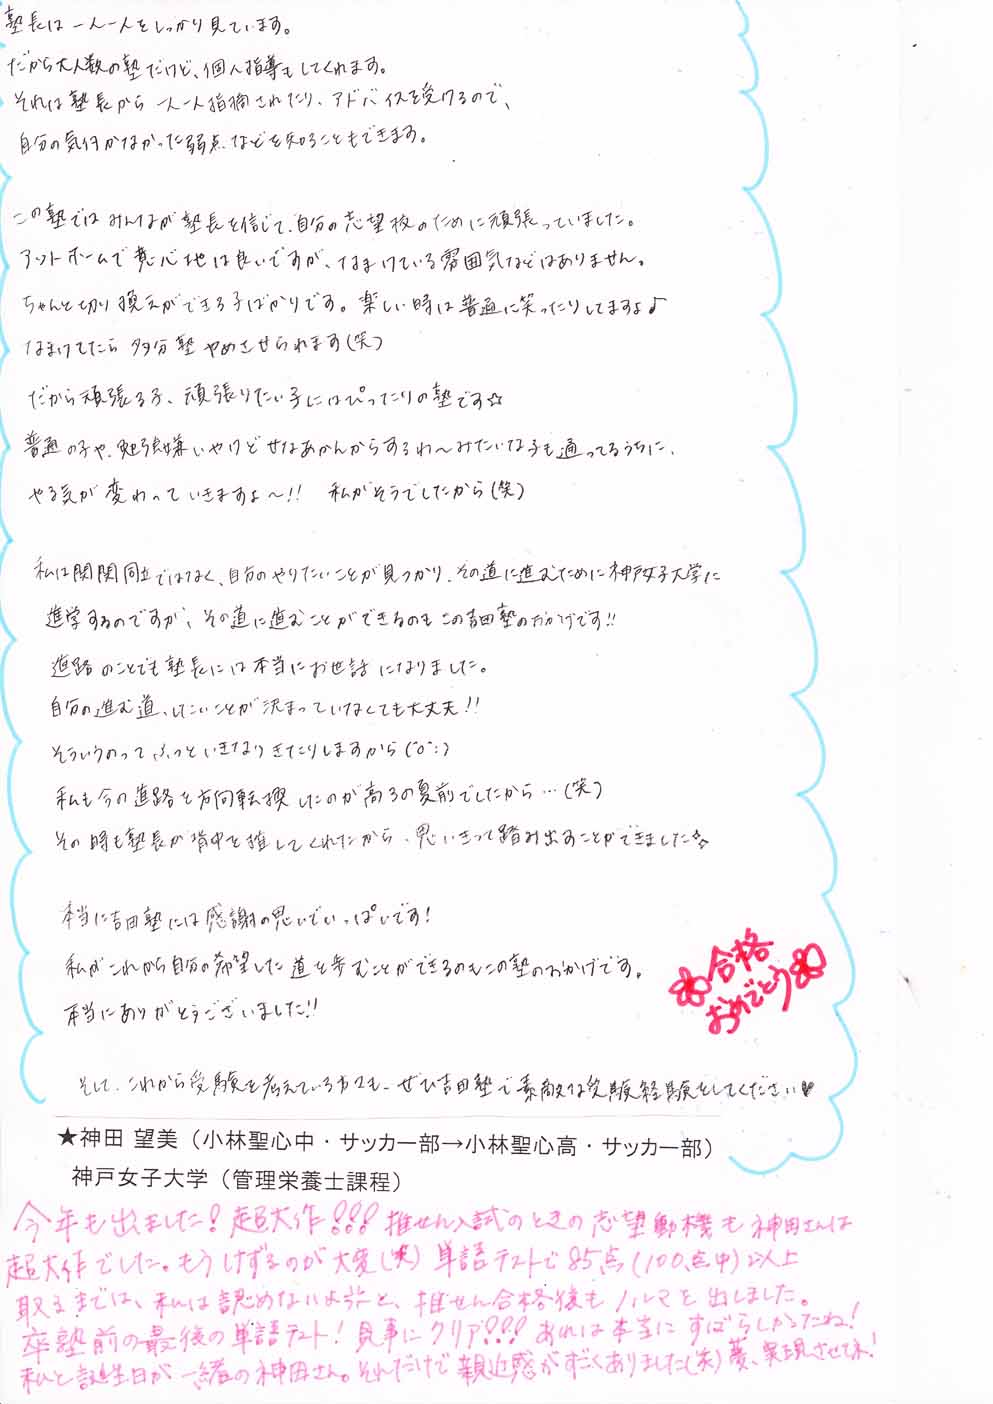 塾長は一人一人をしっかり見ています。
だから大人数の塾だけど、個人指導もしてくれます。
それは塾長から一人一人指摘されたり、アドバイスを受けるので、
自分の気付かなかった弱点などを知ることもできます。
この塾ではみんなが塾長を信じて、自分の志望校のために頑張っていました。
アットホームで居心地は良いですが、なまけている雰囲気などはありません。
ちゃんと切り換えができる子ばかりです。楽しい時は普通に笑ったりしてますよ♪
なまけてたら多分塾やめさせられます(笑)
だから頑張る子、頑張りたい子にはぴったりの塾です☆
普通の子や、勉強嫌いやけどせなあかんからするわ〜みたいな子も通ってるうちに、
やる気が変わっていきますよ〜!! 私がそうでしたから(笑)
私は関関同立ではなく、自分のやりたいことが見つかり、その道に進むために神戸女子大学に
進学するのですが、その道に進むことができるのもこの吉田塾のおかげです!!
進路のことでも塾長には本当にお世話になりました。
自分の進む道、したいことが決まっていなくても大丈夫!!
そういうのってふっといきなりきたりしますから(^o^;)
私も今の進路を方向転換したのが高3の夏前でしたから…(笑)
その時も塾長が背中を推してくれたから、思いきって踏み出すことができました☆
本当に吉田塾には感謝の思いでいっぱいです!
私がこれから自分の希望した道を歩むことができるのもこの塾のおかげです。
本当にありがとうございました!!
合格
おめでとう
そして、これから受験を考えている方々も、ぜひ吉田塾で素敵な受験経験をしてください♥
★神田 望美（小林聖心中・サッカー部→小林聖心高・サッカー部）
神戸女子大学（管理栄養士課程）
今年も出ました!超大作!!! 推せん入試のときの志望動機も神田さんは
超大作でした。もうけずるのが大変(笑) 単語テストで85点(100点中)以上
取るまでは、私は認めないよ と、推せん合格後もノルマを出しました。
卒塾前の最後の単語テスト!見事にクリア!!! あれは本当にすばらしかったね!
私と誕生日が一緒の神田さん。それだけで親近感がすごくありました(笑)夢、実現させてネ!